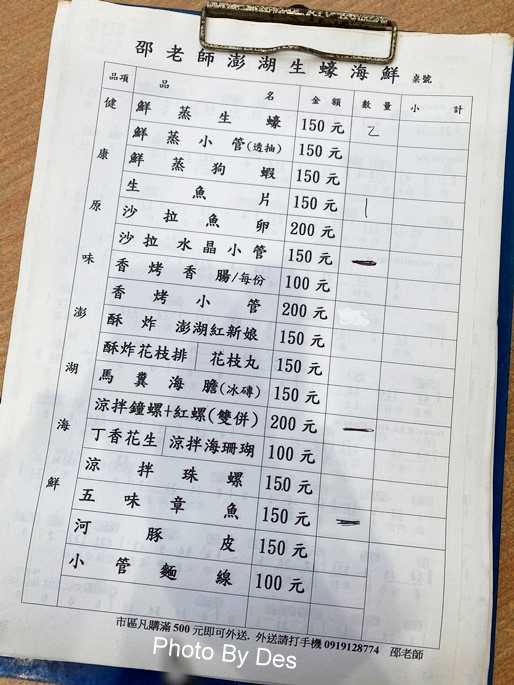 邵老師澎湖生蠔海鮮 桌號
品項 品名 金額 數量 小計
健康原味澎湖海鮮
鮮蒸生蠔 150元 2
鮮蒸小管(透抽) 150元
鮮蒸狗蝦 150元
生魚片 150元 1
沙拉魚卵 200元
沙拉水晶小管 150元 一
香烤香腸/每份 100元
香烤小管 200元
酥炸澎湖紅新娘 150元
酥炸花枝排 花枝丸 150元
馬糞海膽(冰磚) 150元
涼拌鐘螺+紅螺(雙併) 200元 一
丁香花生 涼拌海珊瑚 100元
涼拌珠螺 150元
五味章魚 150元 一
河豚皮 150元
小管麵線 100元
市區凡購滿500元即可外送,外送請打手機0919128774 邵老師
Photo By Des